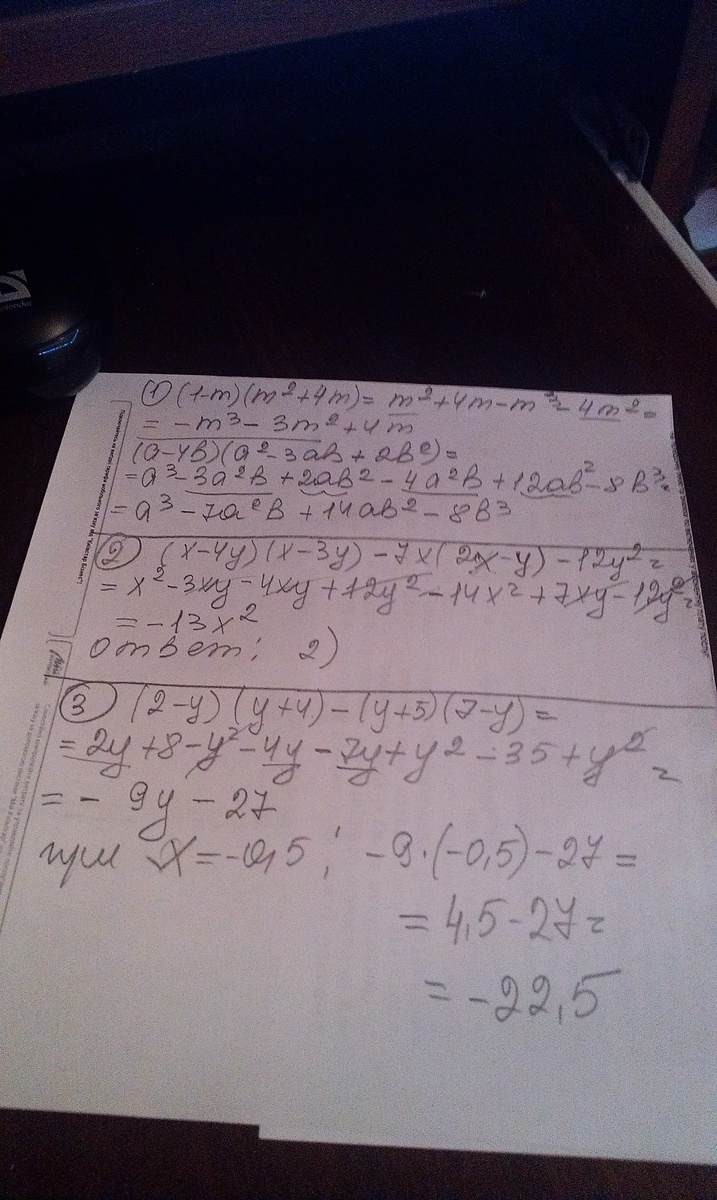 ① (1-m)(m²+4m) = m²+4m-m³-4m²=
= -m³-3m²+4m
(a-4b)(a²-3ab+2b²)=
=a³-3a²b+2ab²-4a²b+12ab²-8b³=
=a³-7a²b+14ab²-8b³
② (x-4y)(x-3y)-7x(2x-y)-12y²=
= x²-3xy-4xy+12y²-14x²+7xy-12y²=
= -13x²
ответ: 2)
③ (2-y)(y+4)-(y+5)(7-y)=
=2y+8-y²-4y-7y+y²-35+y²=
= -9y-27
при x=-0,5; -9·(-0,5)-27=
= 4,5-27=
= -22,5